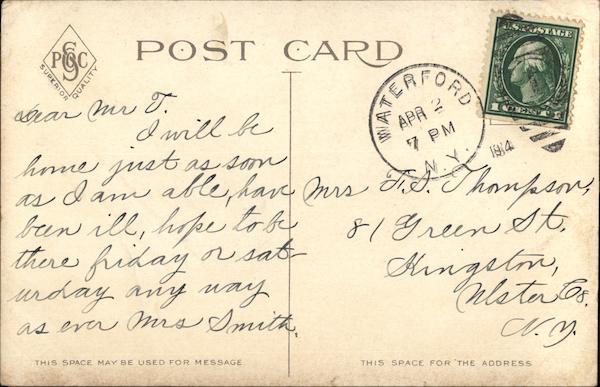 PSC
SUPERIOR QUALITY
POST CARD
U.S. POSTAGE
1 CENT 1
WATERFORD
APR 2
7 PM
N.Y.
1914
Dear Mr T.
I will be
home just as soon
as I am able, have
been ill, hope to be
there friday or sat-
urday any way
as ever Mrs Smith.
Mrs F. S. Thompson,
81 Green St.
Kingston,
Ulster Co.
N.Y.
THIS SPACE MAY BE USED FOR MESSAGE
THIS SPACE FOR THE ADDRESS